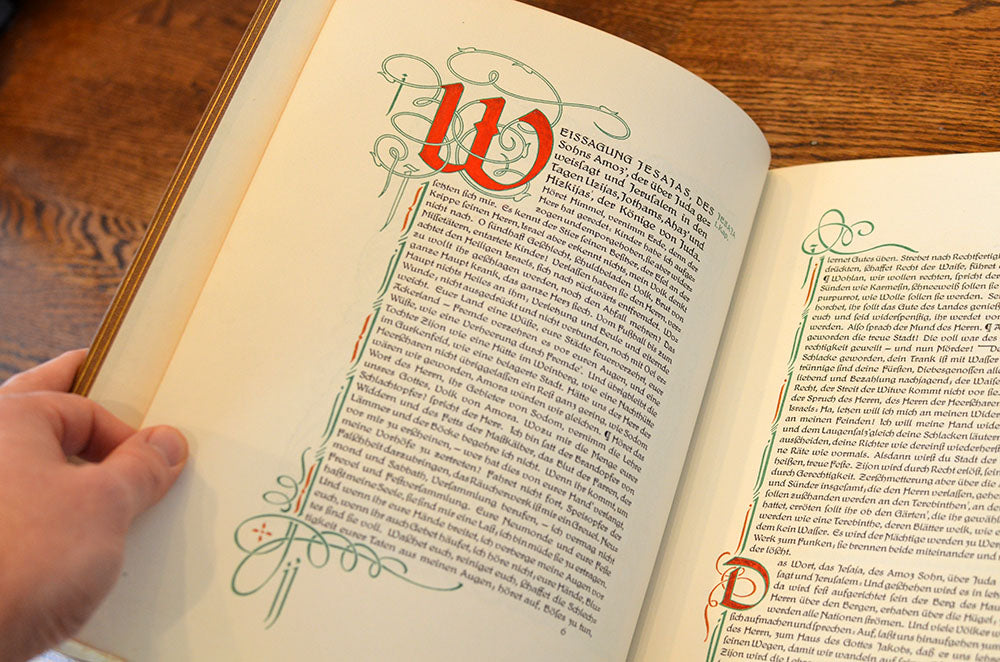 WEISSAGUNG JESAJAS, DES
Sohns Amoz', der über Juda ge-
weissagt und Jerusalem in den
Tagen Uzijas, Jothams, Ahaz' und
Hizkijas', der Könige von Juda.
JESAJA
I. Kap.
Höret Himmel, vernimm Erde, denn der
Herr hat geredet: Kinder habe ich aufge-
zogen und emporgehoben, sie aber
sich mir. Es kennt der Stier seinen Besitzer, der Esel die
Krippe seines Herrn, Israel aber erkennt nichts, mein Volk
nicht nach. O sündhaft Geschlecht, schuldbeladen Volk, Brut von
Missetätern, entartete Kinder! Verlassen haben sie den Herrn, ver-
achtet den Heiligen Israels, sich nach rückwärts entfremdet.
zu wollt ihr geschlagen werden, noch den Abfall mehren? Das
ganze Haupt krank, das ganze Herz siech. Vom Fußball bis zum
Haupt nichts Heiles an ihm; Verletzung und Beule und eiternde
Wunde, nicht ausgedrückt und nicht verbunden noch mit Oel er-
weicht. Euer Land eine Wüste, eure Städte feuerverzehrt, euer
Ackerland – Fremde verzehren es vor euren Augen, und eine
Wüste, wie eine Verheerung durch Fremde. Und übrig bleibt die
Tochter Zijon wie eine Hütte im Weinberg, wie eine Nachthütte
im Gurkenfeld, wie eine belagerte Stadt. Hätte uns der Herr der
Heerscharen nicht übriggelassen ein Rest gar gering, wie Sodom
wären wir geworden, Amora würden wir gleichen. ¶ Höret das
Wort des Herrn, ihr Gebieter von Sodom, vernimm die Lehre
unsres Gottes, Volk von Amora. Wozu mir die Menge eurer
Schlachtopfer? spricht der Herr. Ich bin satt der Brandopfer von
Widdern und des Fetts der Mastkälber, das Blut der Farren, der
Lämmer und der Böcke begehre ich nicht. Wenn ihr kommt, um
vor mir zu erscheinen, – wer hat dies von eurer Hand verlangt,
meine Vorhöfe zu zertreten? Fahret nicht fort, Speisopfer der
Falschheit darzubringen, das Räucherwerk ist mir ein Greuel. Neu-
mond und Sabbath, Versammlung berufen, – ich vermag nicht
Frevel und Festversammlung. Eure Neumonde und eure Feste
haßt meine Seele, sie sind mir eine Last, ich bin müde sie zu ertragen.
Und wenn ihr eure Hände breitet, ich verberge meine Augen vor
euch, wenn ihr auch Gebet häufet, ich höre nicht; eure Hände, Blu-
tes sind sie voll. Waschet euch, reiniget euch, schaffet die Schlech-
tigkeit eurer Taten aus meinen Augen, höret auf, Böses zu tun,
6
lernet Gutes üben. Strebet nach Rechtfertig
drückten, schaffet Recht der Waise, führet
¶ Wohlan, wir wollen rechten, spricht der
Sünden wie Karmesin, schneeweiß sollen sie
purpurrot, wie Wolle sollen sie werden.
horchet, ihr sollt das Gut des Landes genieß
euch und seid widerspenstig, ihr werdet vo
werden. Also sprach der Mund des Herrn. ¶
geworden die treue Stadt! Die voll war des
rechtigkeit geweilt – und nun Mörder!
Schlacke geworden, dein Trank ist mit Wasser
trünnige sind deine Fürsten, Diebesgenossen all
liebend und Bezahlung nachjagend; der Waise
Recht, der Streit der Witwe kommt nicht vor sie.
der Spruch des Herrn, des Herrn der Heerscharen
Israels: Ha, letzen will ich mich an meinen Wider
an meinen Feinden! Ich will meine Hand wide
und dem Laugensalz gleich deine Schlacken läutern
ausscheiden, deine Richter wie dereinst wiederherst
ne Räte wie vormals. Alsdann wirst du Stadt der
heißen, treue Feste. Zijon wird durch Recht erlöst, sein
durch Gerechtigkeit. Zerschmetterung aber über die
und Sünder insgesamt, die den Herrn verlassen, gehe
sollen zuschanden werden an den Terebinthen', an de
hattet, erröten sollt ihr ob den Gärten', die ihr gewäh
werden wie eine Terebinthe, deren Blätter welk, wie e
dem kein Wasser. Es wird der Mächtige werden zu Wer
Werk zum Funken; sie brennen beide miteinander und
der löscht.
Das Wort, das Jesaja, des Amoz Sohn, über Juda
sagt und Jerusalem: Und geschehen wird es in letz
da wird fest aufgerichtet sein der Berg des Hau
Herrn über den Bergen, erhaben über die Hügel;
werden alle Nationen strömen. Und viele Völker w
sich aufmachen und sprechen: Auf, laßt uns hinaufgehen zum
des Herrn, zum Haus des Gottes Jakobs, daß er uns lehr
seinen Wegen, damit wir wandeln auf sei
Zijon wird die Lehre